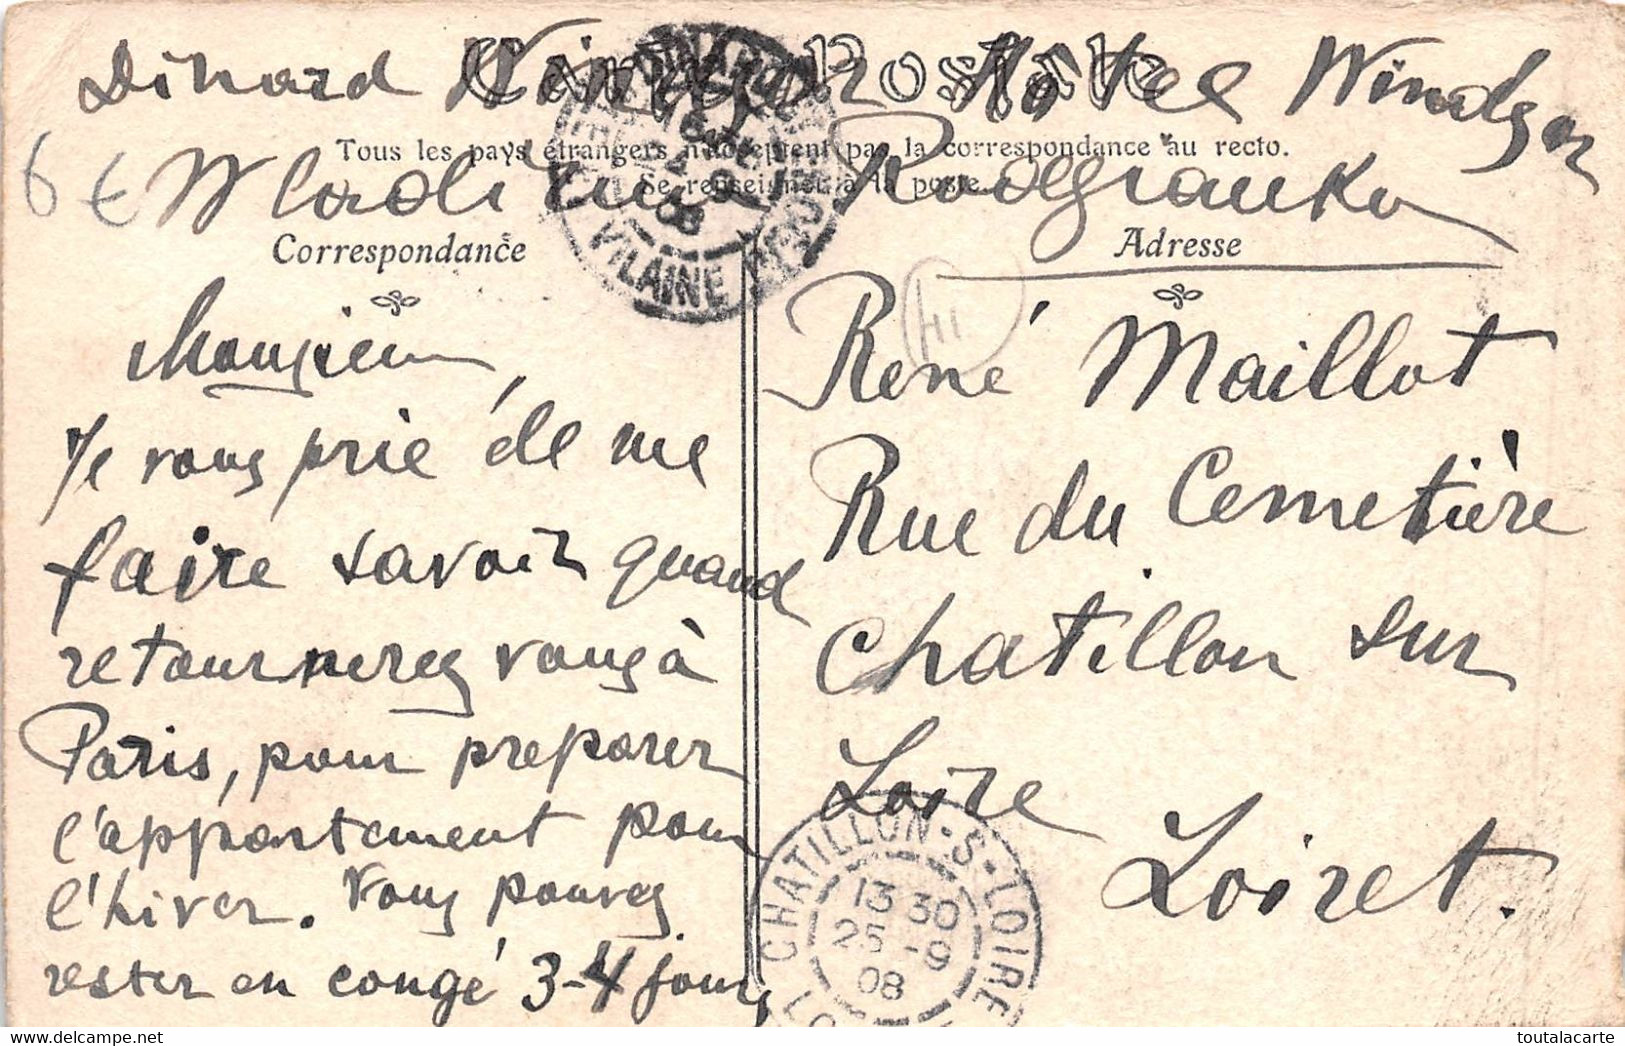 Dinard Hôtel Windsor
Carte Postale
Tous les pays étrangers n'acceptent pas la correspondance au recto.
Se renseigner à la poste
6 €
Correspondance
Adresse
VILAINE
08
Monsieur,
Je vous prie de me
faire savoir quand
retournerez vous à
Paris, pour preparer
l'appartement pour
l'hiver. Vous pouvez
rester en congé 3-4 jours
René Maillot
Rue du Cemetière
Chatillon sur
Loire
Loiret.
CHATILLON-S-LOIRE
13 30
25 -9
08
toutalacarte